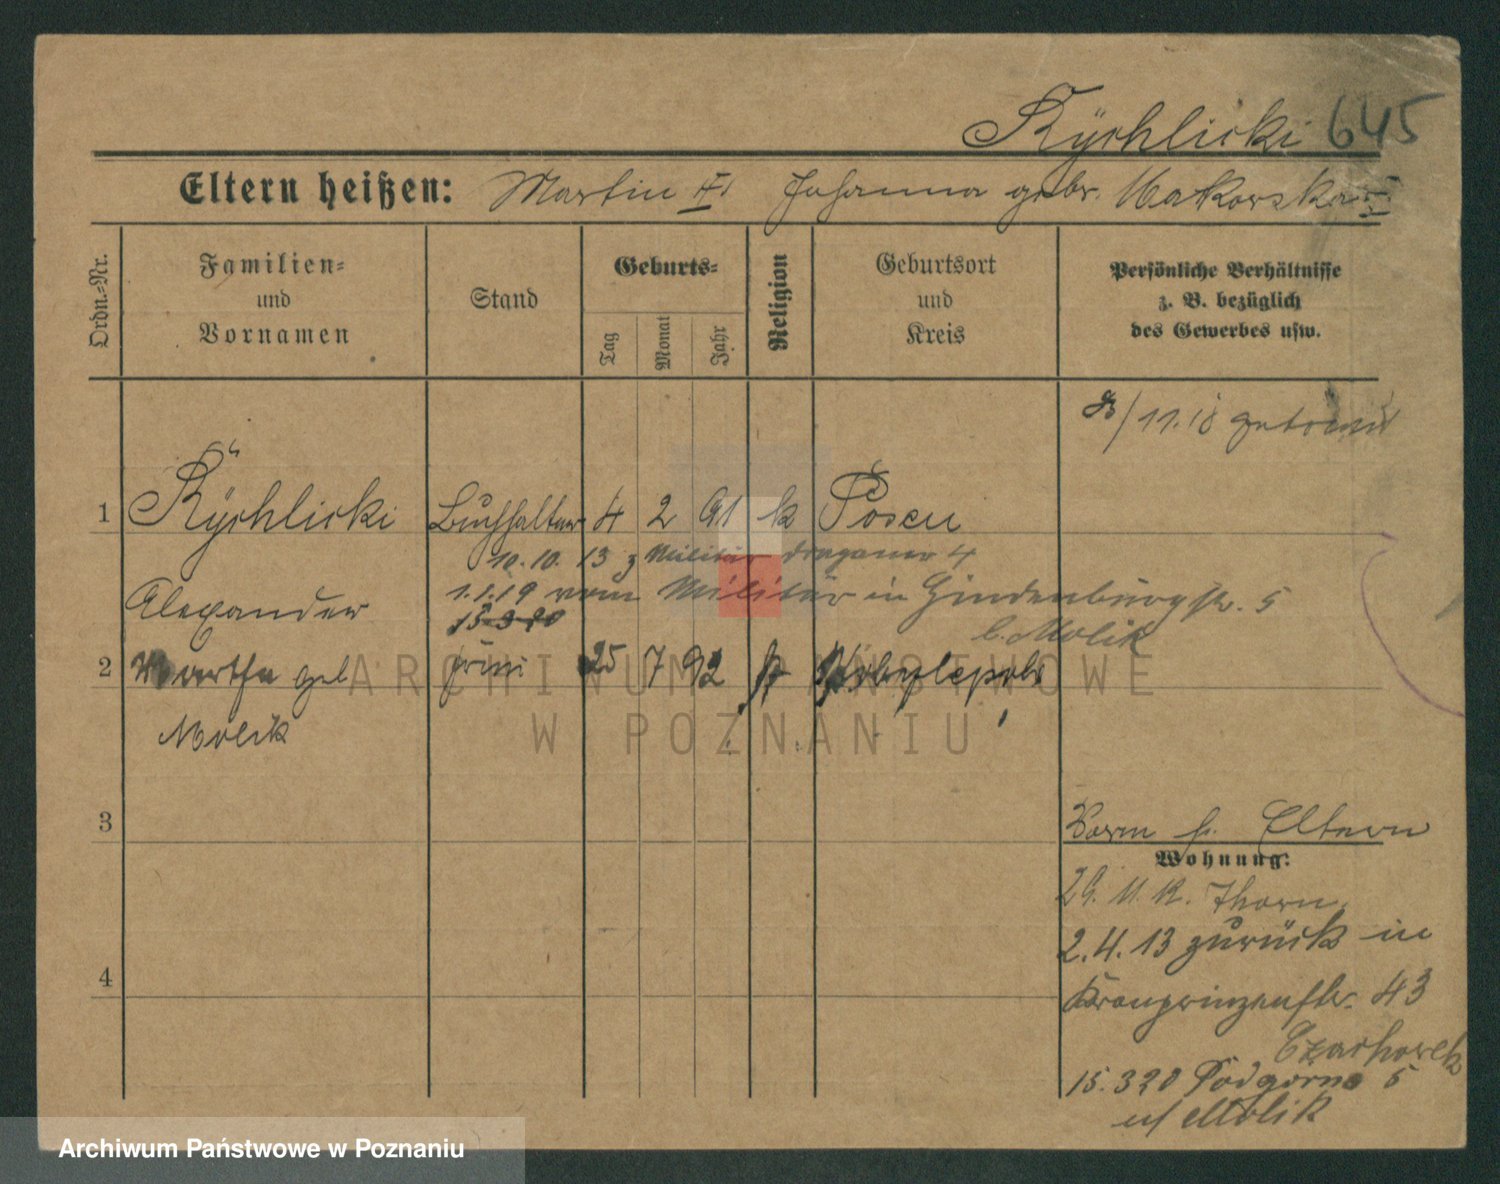 Rÿchlicki 645
Eltern heißen: Martin Johanna gebr. Makowska
Ordn.-Nr.
Familien-
und
Vornamen
Stand
Geburts-
Tag
Monat
Jahr
Religion
Geburtsort
und
Kreis
Persönliche Verhältnisse
z. B. bezüglich
des Gewerbes usw.
/11.18
1 Rÿchlicki Buchhalter 4 2 91 k Posen
10.10.13 z Militär Dragoner 4
1.1.19 vom Militär in Hindenburgstr. 5
Alexander 15.3.20 b. Molik
2 Martha geb 25 7 92
Molik
ARCHIWUM PAŃSTWOWE
W POZNANIU
3
Vorm b. Eltern
Wohnung:
Thorn.
2.4.13 zurück in
4
Kronprinzenstr. 43
Czachorek
15.3 20 Podgórna 5
b/ Molik
Archiwum Państwowe w Poznaniu